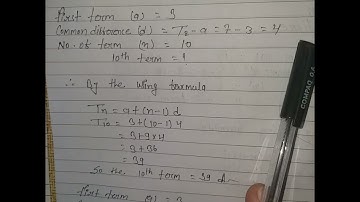 first term (a) = 3
Common difference (d) = T2 - a = 7 - 3 = 4
No. of term (n) = 10
10th term = ?
∴ By the using formula
Tn = a + (n-1) d
T10 = 3 + (10-1) 4
= 3 + 9 x 4
= 3 + 36
= 39
So the 10th term = 39
first term
COMPAQ 0.6